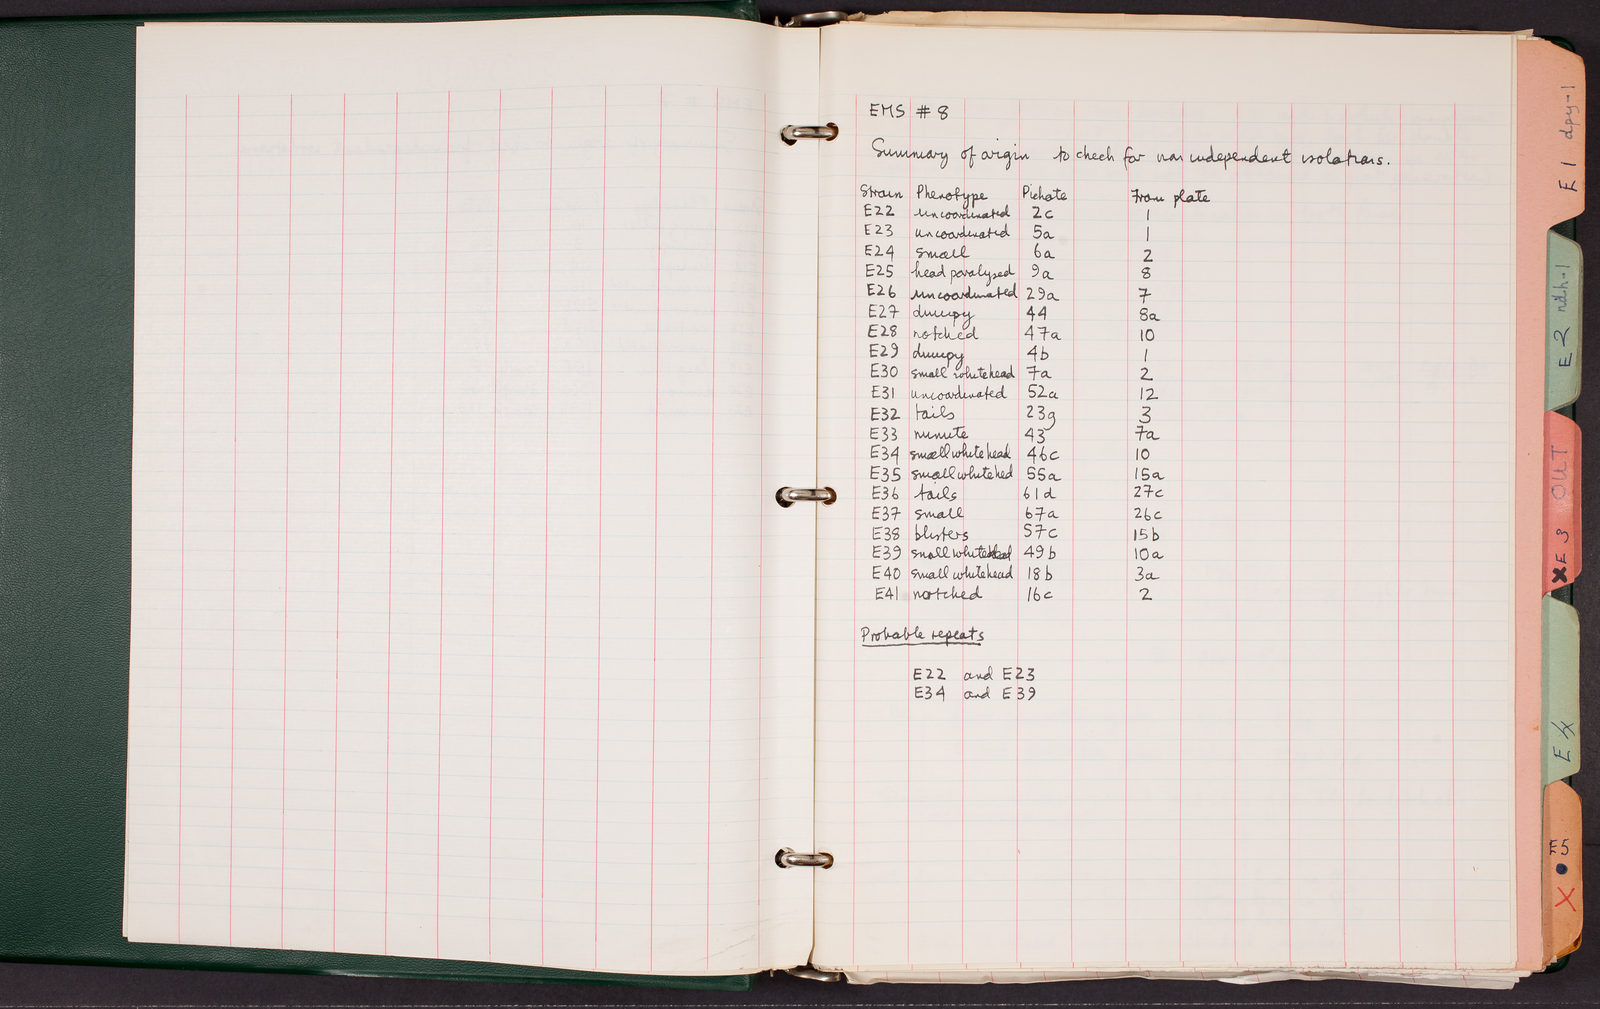 EMS # 8
Summary of origin to check for non independent isolations.
Strain Phenotype Pickate From plate
E22 uncoordinated 2c 1
E23 uncoordinated 5a 1
E24 small 6a 2
E25 head paralysed 9a 8
E26 uncoordinated 29a 7
E27 dumpy 44 8a
E28 notched 47a 10
E29 dumpy 4b 1
E30 small whitehead 7a 2
E31 uncoordinated 52a 12
E32 tails 23g 3
E33 minute 43 7a
E34 small white head 46c 10
E35 small white hed 55a 15a
E36 tails 61d 27c
E37 small 67a 26c
E38 blisters 57c 15b
E39 small whitehead 49b 10a
E40 small whitehead 18b 3a
E41 notched 16c 2
Probable repeats
E22 and E23
E34 and E39
E1 dpy-1
E2
XE3 OUT
E4
E5
X